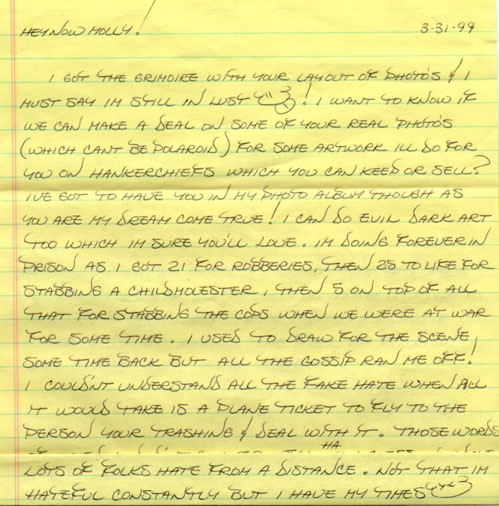 HEY NOW MOLLY! 3-31-99
I GOT THE GRIMOIRE WITH YOUR LAYOUT OF PHOTO'S & I
MUST SAY IM STILL IN LUST! I WANT TO KNOW IF
WE CAN MAKE A DEAL ON SOME OF YOUR REAL PHOTO'S
(WHICH CANT BE POLAROID) FOR SOME ARTWORK ILL DO FOR
YOU ON HANKERCHIEFS WHICH YOU CAN KEEP OR SELL?
IVE GOT TO HAVE YOU IN MY PHOTO ALBUM THOUGH AS
YOU ARE MY DREAM COME TRUE! I CAN DO EVIL DARK ART
TOO WHICH IM SURE YOU'LL LOVE. IM DOING FOREVER IN
PRISON AS I GOT 21 FOR ROBBERIES, THEN 25 TO LIFE FOR
STABBING A CHILDMOLESTER, THEN 5 ON TOP OF ALL
THAT FOR STABBING THE COPS WHEN WE WERE AT WAR
FOR SOME TIME. I USED TO DRAW FOR THE SCENE
SOME TIME BACK BUT ALL THE GOSSIP RAN ME OFF!
I COULDNT UNDERSTAND ALL THE FAKE HATE WHEN ALL
IT WOULD TAKE IS A PLANE TICKET TO FLY TO THE
PERSON YOUR TRASHING & DEAL WITH IT. THOSE WORDS
HA
LOTS OF FOLKS HATE FROM A DISTANCE. NOT THAT IM
HATEFUL CONSTANTLY BUT I HAVE MY TIMES